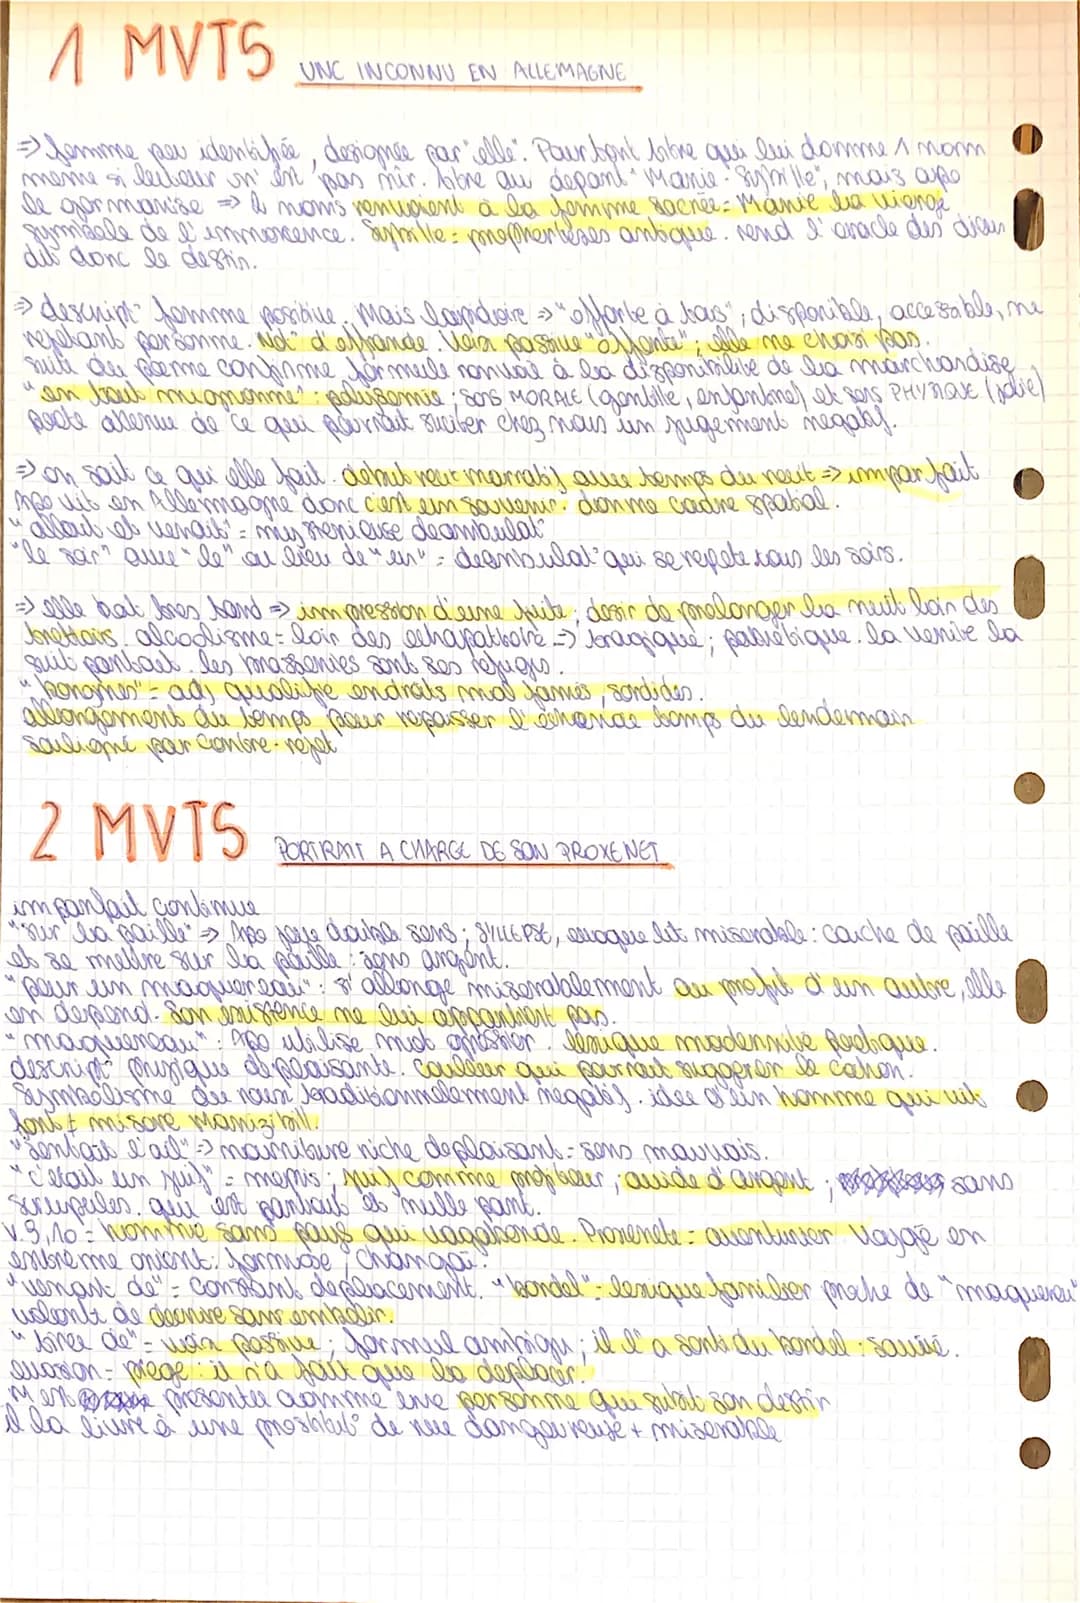 1 MVTS
UNC INCONNU EN ALLEMAGNE
=> femme peu identifiée, designée par "elle". Pourtant titre qui lui donne 1 nom
meme si lecteur n'en est pas sûr. titre au depart "Marie-Sybille", mais apo
le germanise => 2 noms renvoient à la femme sacrée = Marie la vierge
symbole de l'innocence. Sybille = prophetesses antique. rend l'oracle des dieux
dit donc le destin.
=> descript° femme positive. Mais lapidaire => "offerte à tous", disponible, accessible, ne
rejetant personne. Not° d'offrande. Voix passive "offerte"; elle ne choisi pas.
suite du poeme confirme formule renvoie à la disponibilité de la marchandise
"en tout mignonne": polysemie; sens MORALE (gentille, enfantine) et sens PHYSIQUE (jolie)
poete attenue de ce qui pourrait susciter chez nous un jugement negatif.
=> on sait ce qui elle fait. debut recit narratif avec temps du recit => imparfait
Apo vit en Allemagne donc c'est un souvenir. donne cadre spatial.
"allait et venait" = mysterieuse deambulat°
"le soir" avec "le" au lieu de "un" = deambulat° qui se repete tous les soirs.
=> elle boit tres tard => impression d'une fuite; desir de prolonger la nuit loin des
trottoirs. alcoolisme = loin des echapatoire => tragique; pathétique. la verite la
suit partout. les brasseries sont ses refuges.
"borgnes" = adj qualifie endroits mal famés, sordides.
allongement du temps pour repousser l'échéance temps du lendemain
souligné par contre-rejet
2 MVTS
PORTRAIT A CHARGE DE SON PROXENET
imparfait continue
"sur la paille" => Apo joue double sens; SYLLEPSE, evoque lit miserable: couche de paille
et se mettre sur la paille: sans argent.
"pour un maquereau": s'allonge miserablement au profit d'un autre, elle
en depend. Son existence ne lui appartient pas.
"maquereau": Apo utilise mot grossier. lexique modernité poetique.
descript° physique deplaisante. couleur qui pourrait suggerer le cahon.
Symbolisme du roux traditionnelement negatif. idee d'un homme qui vit
font ≠ misere Marizibill.
"Sentait l'ail" => nourriture riche deplaisant = sens mauvais.
"c'etait un juif" = mepris; juif comme profiteur, avide d'argent, sans
scrupules. qui est partout et nulle part.
v.9,10 = homme sans pays qui vagabonde. Proxenete = aventurier. Voyage en
extreme orient: formose, Changaï.
"venant de" = constant deplacement. "bordel" = lexique familier proche de "maquereau"
volonté de decrire sans embellir.
"tirée de" = voix passive; formul ambigu; il l'a sorti du bordel: sauvé.
evasion = piege: il n'a fait que la deplacer.
M est presentée comme une personne qui subit son destin
il la livre à une prostitut° de rue dangereuse + miserable